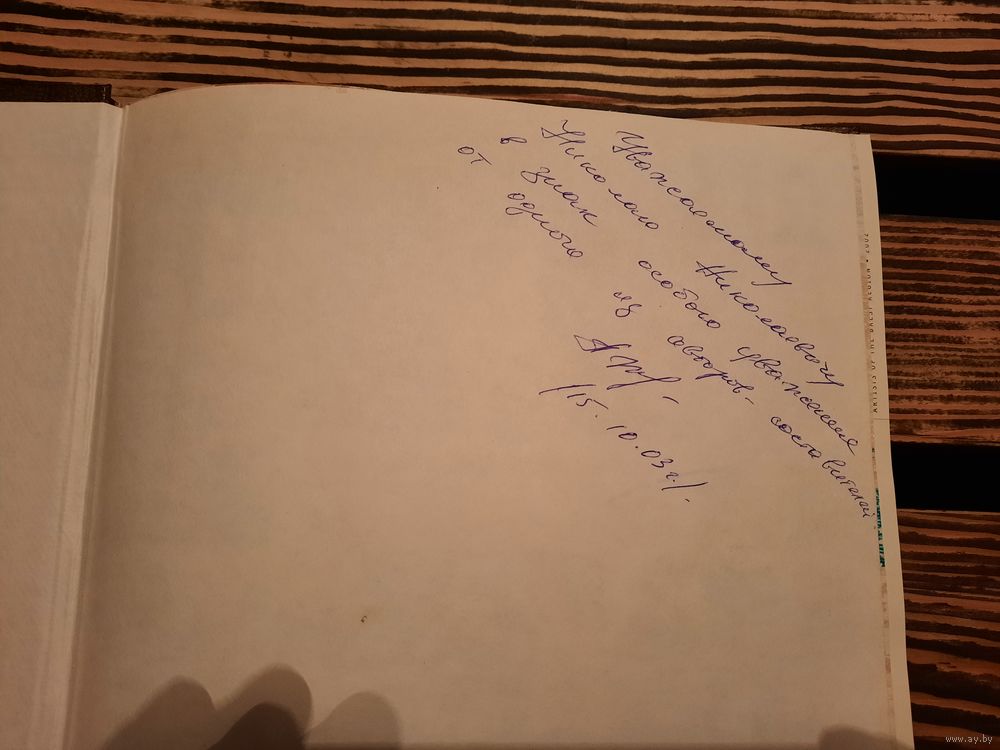 Уважаемому
Николаю Николаевичу
в знак особого уважения
от одного из авторов-составителей
/15.10.03г./.
ARTISTS OF THE BREST REGION • 2002
www.ay.by